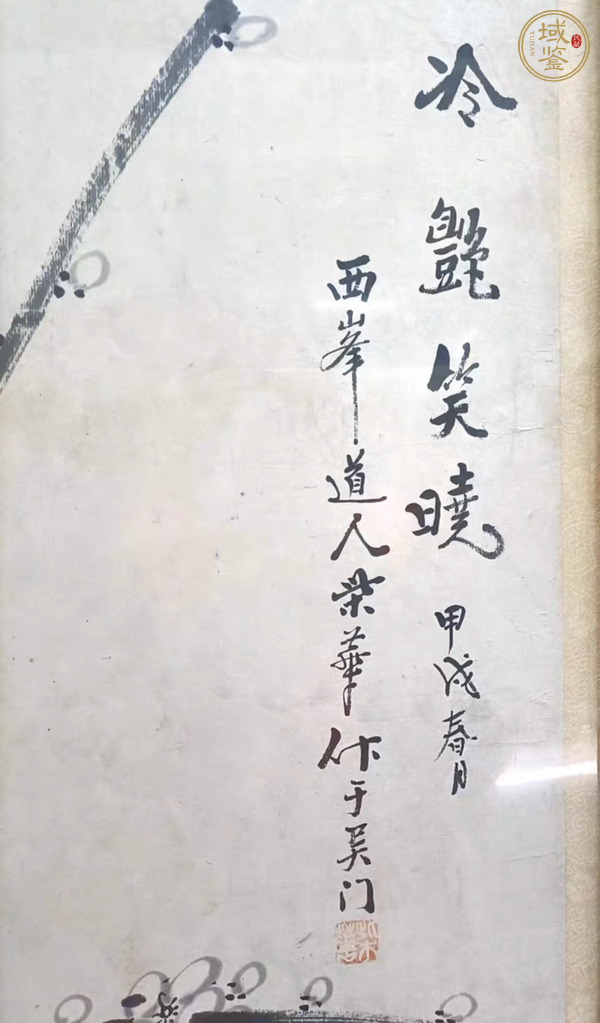 冷豔笑曉
甲戌春月
西峯道人柴華作于吴门
域鉴
YUJIAN